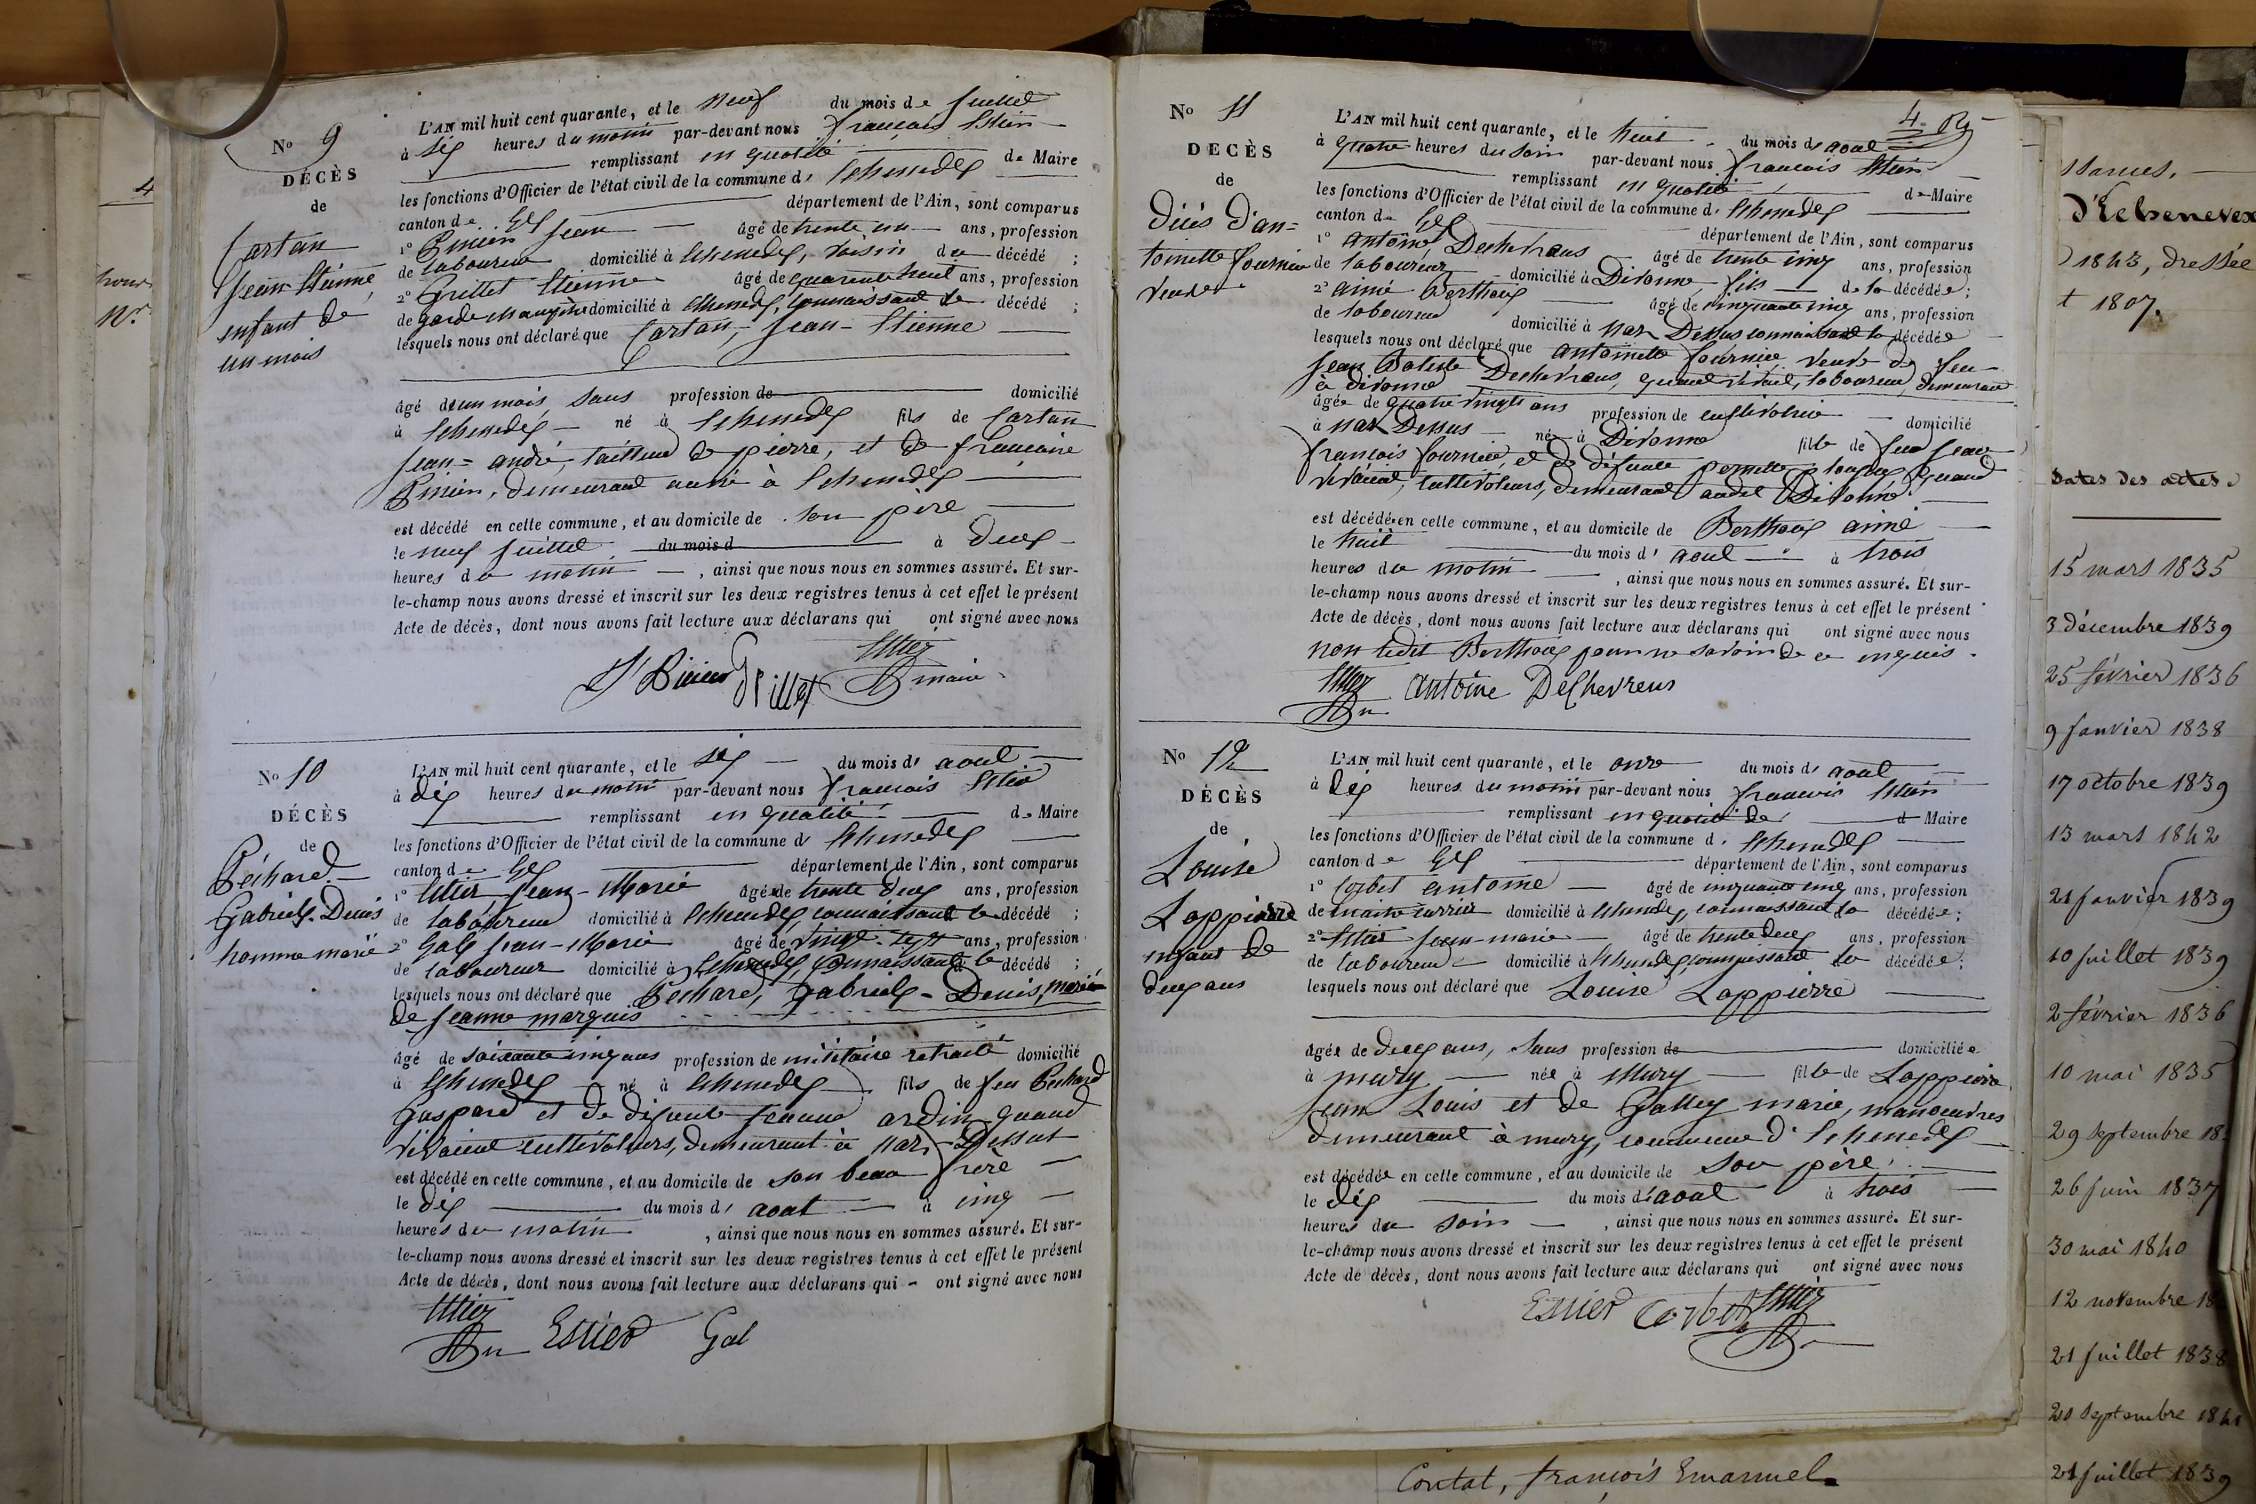 No 9
DÉCÈS
de
Cartan
Jean Etienne
enfant de
un mois
L'AN mil huit cent quarante, et le neuf du mois de Juillet
à six heures du matin par-devant nous françois
remplissant en qualité de Maire
les fonctions d'Officier de l'état civil de la commune d'
canton de Gex département de l'Ain, sont comparus
1° Jean âgé de trente un ans, profession
de laboureur domicilié à voisin du décédé ;
2° Grillet Etienne âgé de quarante huit ans, profession
de garde domicilié à connaissant le décédé ;
lesquels nous ont déclaré que Cartan, Jean-Etienne
âgé d'un mois, sans profession de domicilié
à né à fils de Cartan
Jean-andré, tailleur de pierre, et de françoise
demeurant aussi à
est décédé en cette commune, et au domicile de son père
le neuf Juillet du mois d à deux
heures du matin, ainsi que nous nous en sommes assuré. Et sur-
le-champ nous avons dressé et inscrit sur les deux registres tenus à cet effet le présent
Acte de décès, dont nous avons fait lecture aux déclarans qui ont signé avec nous
Grillet
maire
No 10
DÉCÈS
de
Péchard
Gabriel-Denis
homme marié
L'AN mil huit cent quarante, et le du mois d' aout
à dix heures du matin par-devant nous francois
remplissant en qualité de Maire
les fonctions d'Officier de l'état civil de la commune d'
canton de Gex département de l'Ain, sont comparus
1° Jean-Marie âgé de trente deux ans, profession
de laboureur domicilié à connaissant le décédé ;
2° Gal Jean-Marie âgé de vingt-sept ans, profession
de laboureur domicilié à connaissant le décédé ;
lesquels nous ont déclaré que Pechard, Gabriel-Denis, marié
de Jeanne marquis
âgé de soixante cinq ans profession de militaire retraité domicilié
à né à fils de feu Pechard
Gaspard et de défunte Jeanne ardin quand
vivaient cultivateurs, demeurant à Dessus
est décédé en cette commune, et au domicile de son beau frère
le dix du mois d' aout à cinq
heures du matin, ainsi que nous nous en sommes assuré. Et sur-
le-champ nous avons dressé et inscrit sur les deux registres tenus à cet effet le présent
Acte de décès, dont nous avons fait lecture aux déclarans qui - ont signé avec nous
Estier Gal
No 11
DECÈS
de
Décès d'an=
toinette fournier
veuve
L'AN mil huit cent quarante, et le huit du mois d' aout
à quatre heures du soir par-devant nous francois
remplissant en qualité de Maire
les fonctions d'Officier de l'état civil de la commune d'
canton de Gex département de l'Ain, sont comparus
1° antoine âgé de trente cinq ans, profession
de laboureur domicilié à Divonne, fils de la décédée ;
2° aimé Berthoux âgé de cinquante cinq ans, profession
de laboureur domicilié à Dessus connaissant la décédée
lesquels nous ont déclaré que antoinette fournier veuve de feu
Jean Batiste quand vivait, laboureur, demeurant
à divonne
âgée de quatre vingts ans profession de cultivatrice domicilié
à Dessus née à Divonne fille de feu Jean
françois fournier, et de défunte pernette quand
vivaient, cultivateurs, demeurant audit Divonne.
est décédée en cette commune, et au domicile de Berthoux aimé
le huit du mois d' aout à trois
heures du matin, ainsi que nous nous en sommes assuré. Et sur-
le-champ nous avons dressé et inscrit sur les deux registres tenus à cet effet le présent
Acte de décès, dont nous avons fait lecture aux déclarans qui ont signé avec nous
non ledit Berthoux pour ne savoir de ce enquis.
antoine DeChevrens
No 12
DÉCÈS
de
Louise
Lappierre
enfant de
deux ans
L'AN mil huit cent quarante, et le onze du mois d' aout
à dix heures du matin par-devant nous francois
remplissant en qualité de d Maire
les fonctions d'Officier de l'état civil de la commune d'
canton de Gex département de l'Ain, sont comparus
1° Corbet antoine âgé de cinquante cinq ans, profession
de domicilié à connaissant la décédée ;
2° Jean-marie âgé de trente deux ans, profession
de laboureur domicilié à connaissant la décédée ;
lesquels nous ont déclaré que Louise Lappierre
âgée de deux ans, sans profession de domiciliée
à mury née à Mury fille de Lappierre
Jean Louis et de marie, manoeuvres
demeurant à mury, commune d'
est décédée en cette commune, et au domicile de son père,
le dix du mois d' aout à trois
heures du soir, ainsi que nous nous en sommes assuré. Et sur-
le-champ nous avons dressé et inscrit sur les deux registres tenus à cet effet le présent
Acte de décès, dont nous avons fait lecture aux déclarans qui ont signé avec nous
Estier Corbet
d'Echenevex
1843, dressée
t 1807.
Dates des actes
15 mars 1835
3 décembre 1839
25 février 1836
9 Janvier 1838
17 octobre 1839
13 mars 1842
21 Janvier 1839
10 Juillet 1839
2 février 1836
10 mai 1835
29 septembre 18
26 Juin 1837
30 mai 1840
12 novembre 18
21 Juillet 1838
20 septembre 1841
21 Juillet 1839
Contat, françois Emanuel